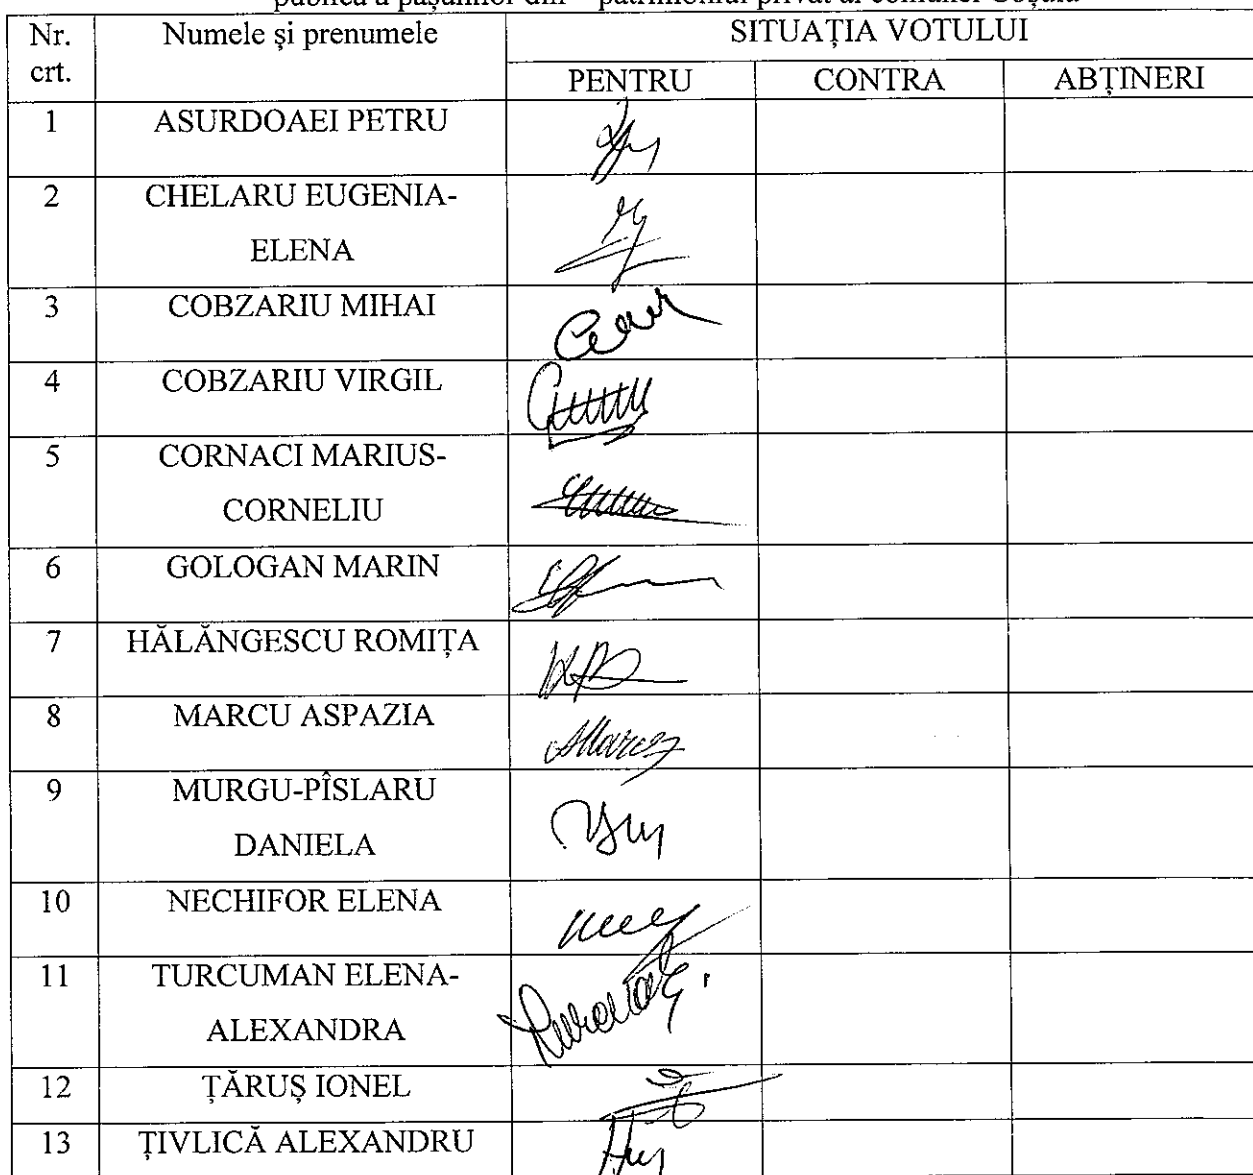 publică a pășunilor din patrimoniul privat al comunei Coșula
Nr. crt. Numele și prenumele SITUAȚIA VOTULUI
PENTRU CONTRA ABȚINERI
1 ASURDOAEI PETRU
2 CHELARU EUGENIA-
ELENA
3 COBZARIU MIHAI
4 COBZARIU VIRGIL
5 CORNACI MARIUS-
CORNELIU
6 GOLOGAN MARIN
7 HĂLĂNGESCU ROMIȚA
8 MARCU ASPAZIA
9 MURGU-PÎSLARU
DANIELA
10 NECHIFOR ELENA
11 TURCUMAN ELENA-
ALEXANDRA
12 ȚĂRUȘ IONEL
13 ȚIVLICĂ ALEXANDRU